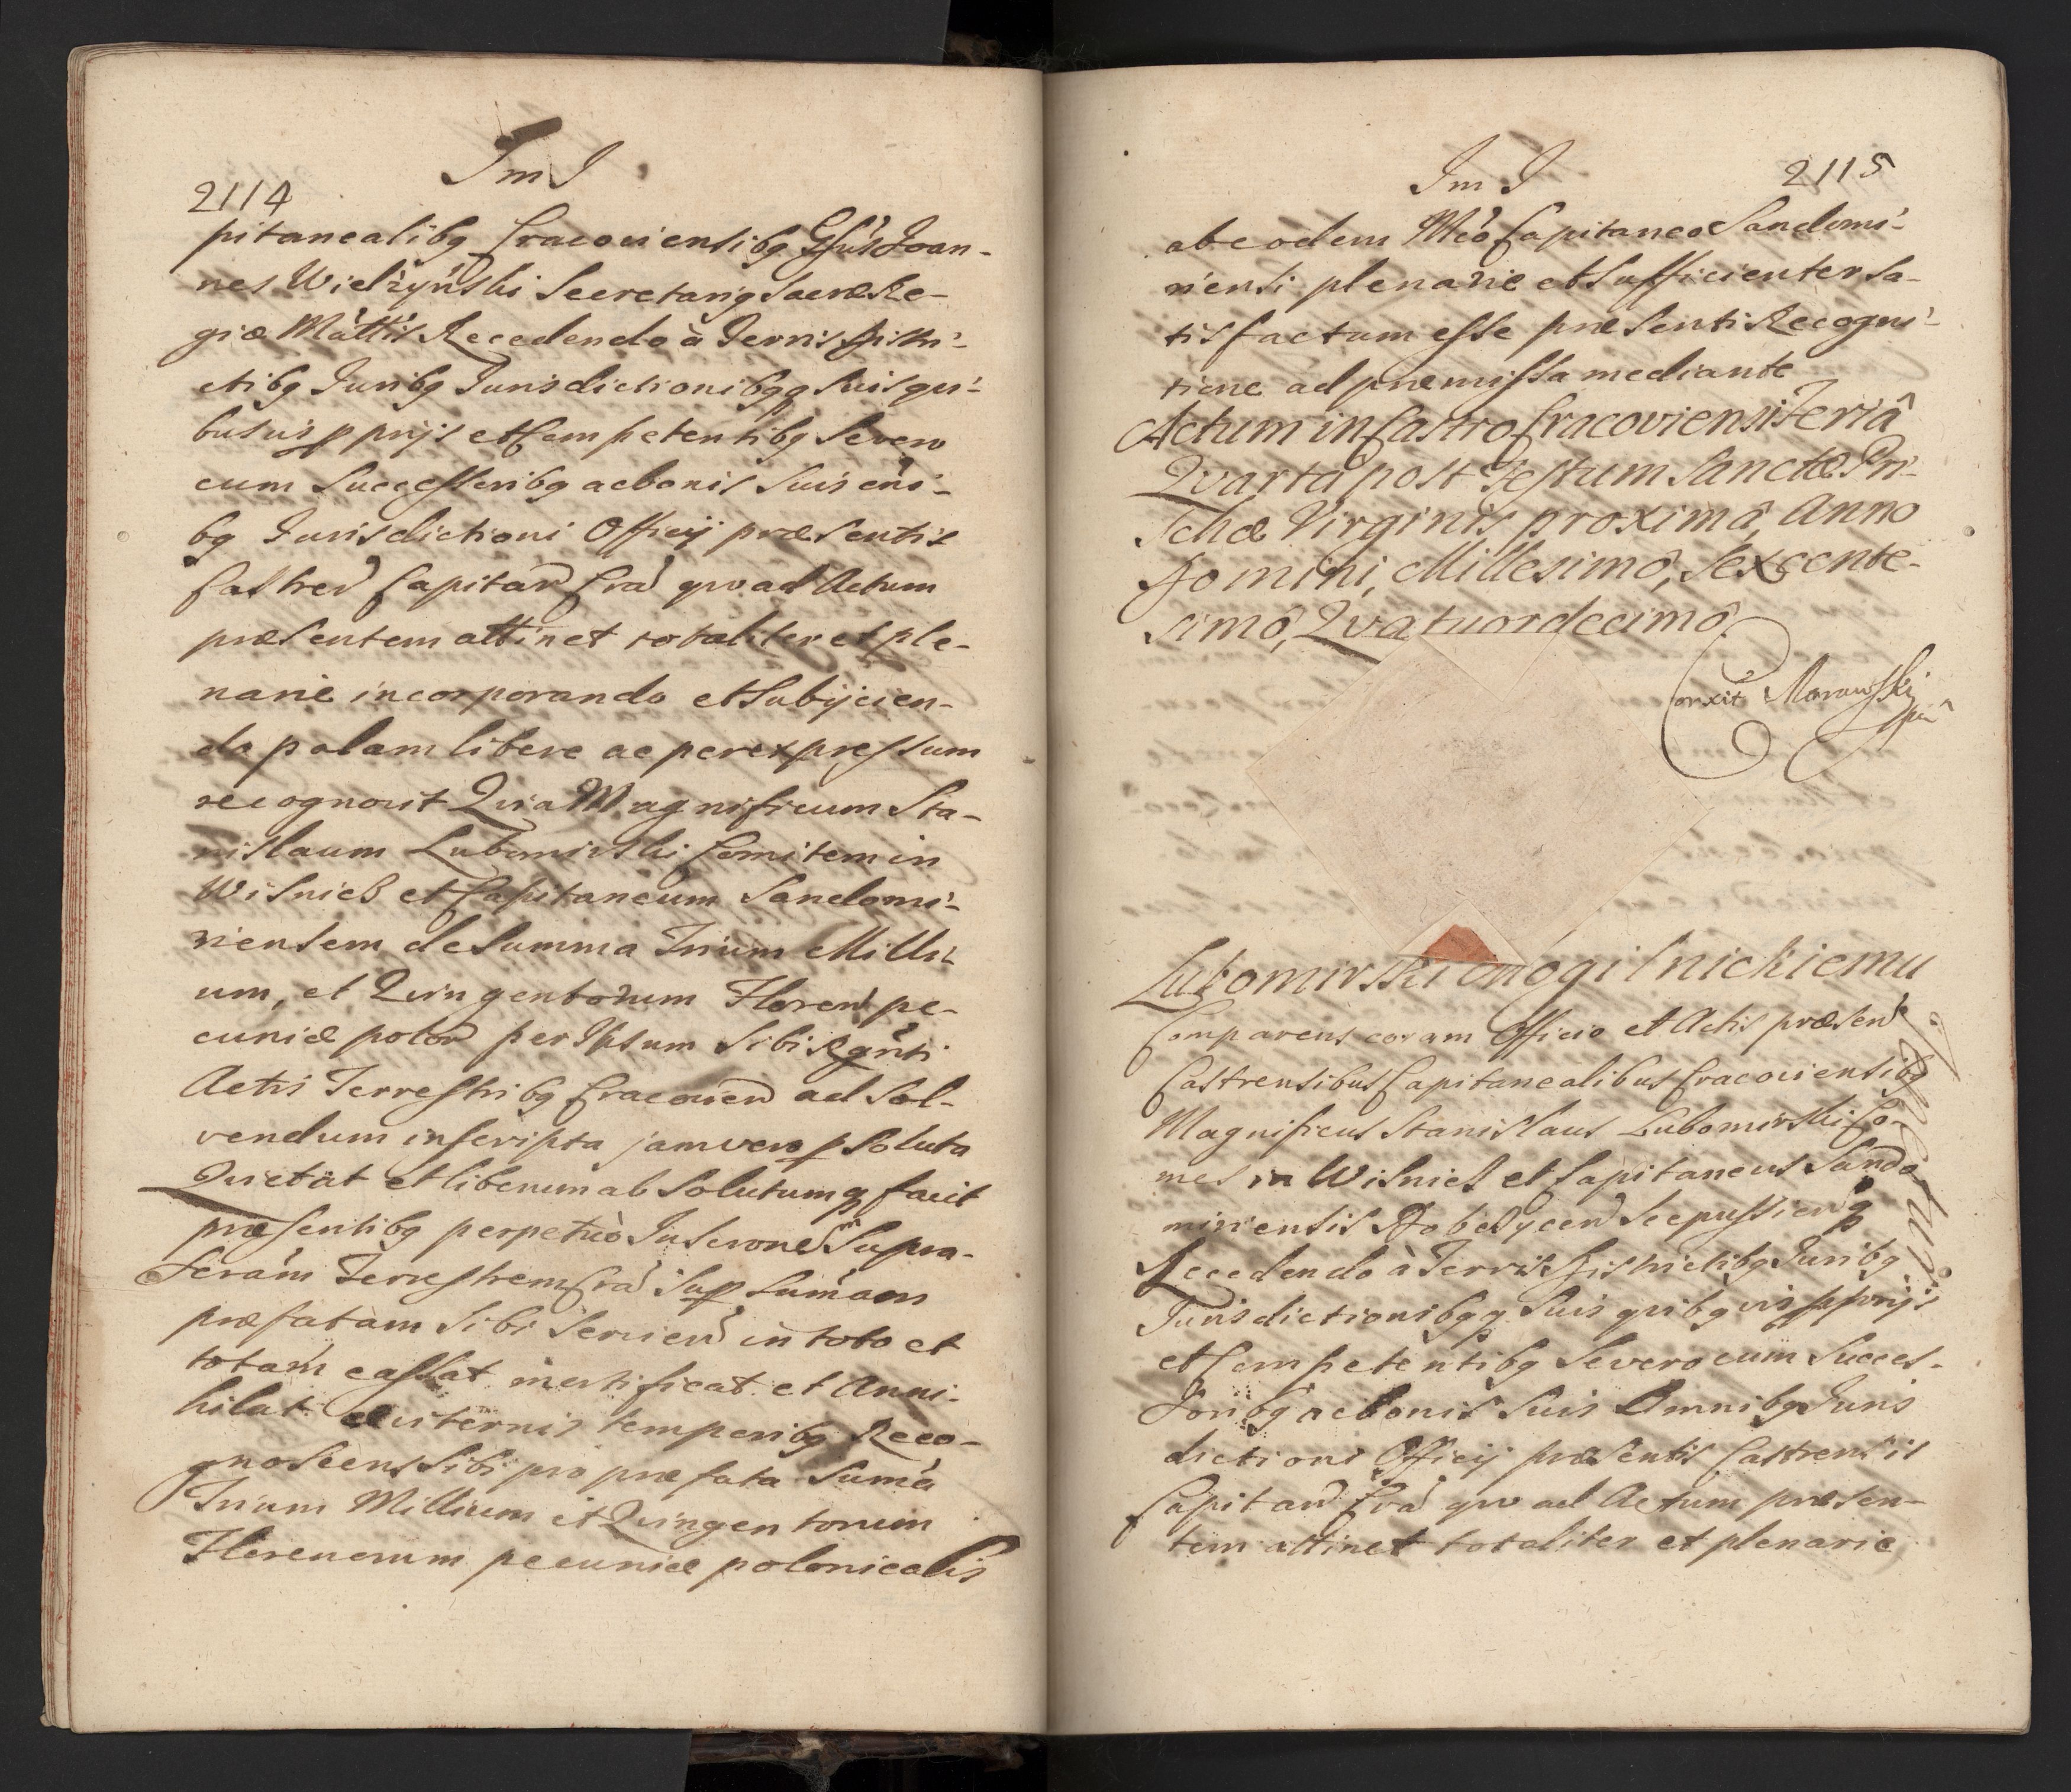 2114
ImI
pitanealibq Cracoviensibq Gsus Joan-
nes Wielżyński Secretariq Sacræ Re-
giæ Mattis Recedendo à Terris Distri-
ctibq Juribq Jurisdictionibqq suis qui-
busvis pprijs et Competentibq Severo
cum Successoribq ac bonis suis oni-
bq Jurisdictioni Officij præsentis
Castren Capitan Cra quo ad Actum
præsentem attinet totaliter et ple-
narie incorporando et Subijcien-
do palam libere ac per expressum
recognovit Quia Magnificum Sta-
nislaum Lubomirski Comitem in
Wisnicz et Capitaneum Sandomi-
riensem de Summa Trium Milli-
um, et Quingentorum Floren pe-
cuniæ polon per Ipsum Sibi
Actis Terrestribq Cracovien ad Sol-
vendum inscripta jam vero psoluta
Quietat et liberum ab solutumqq facit
præsentibq perpetuò Inscrone Supra-
Terrestrem Cra Sup Sumam
præfatam Sibi Servien in toto et
totam cassat mortificat et Anni-
hilat æviternis temporibq Reco-
gnoscens Sibi pro præfata Suma
Trium Millium et Quingentorum
Florenorum pecuniæ polonicalis
Im I
2115
ab eodem Mco Capitaneo Sandomi-
riensi plenarie et Sufficienter Sa-
tisfactum esse præsenti Recogni-
tione ad præmissa mediante
Actum in Castro Cracoviensi Feriâ
Qvarta post Festum Sanctæ Pri-
schæ Virginis proximâ, Anno
Domini, Millesimô, Sexcente-
simô, Qvatuordecimô
Corxit Morawski
mpa
Lubomirski Mogilnickiemu
Comparens coram Officio et Actis præsen
Castrensibus Capitanealibus Cracoviensibq
Magnificus Stanislaus Lubomirski Co-
mes in Wisnicz et Capitaneus Sando
miriensis Dobczycen Scepussienq
Recedendo à Terris Districtibq Juribq
Jurisdictionibqq Suis quibqvis pprijs
et Competentibq Severo cum Succes-
soribq ac bonis Suis Omnibq Juris
dictioni Officij præsentis Castrensis
Capitan Cra quo ad Actum præsen-
tem attinet totaliter et plenarie